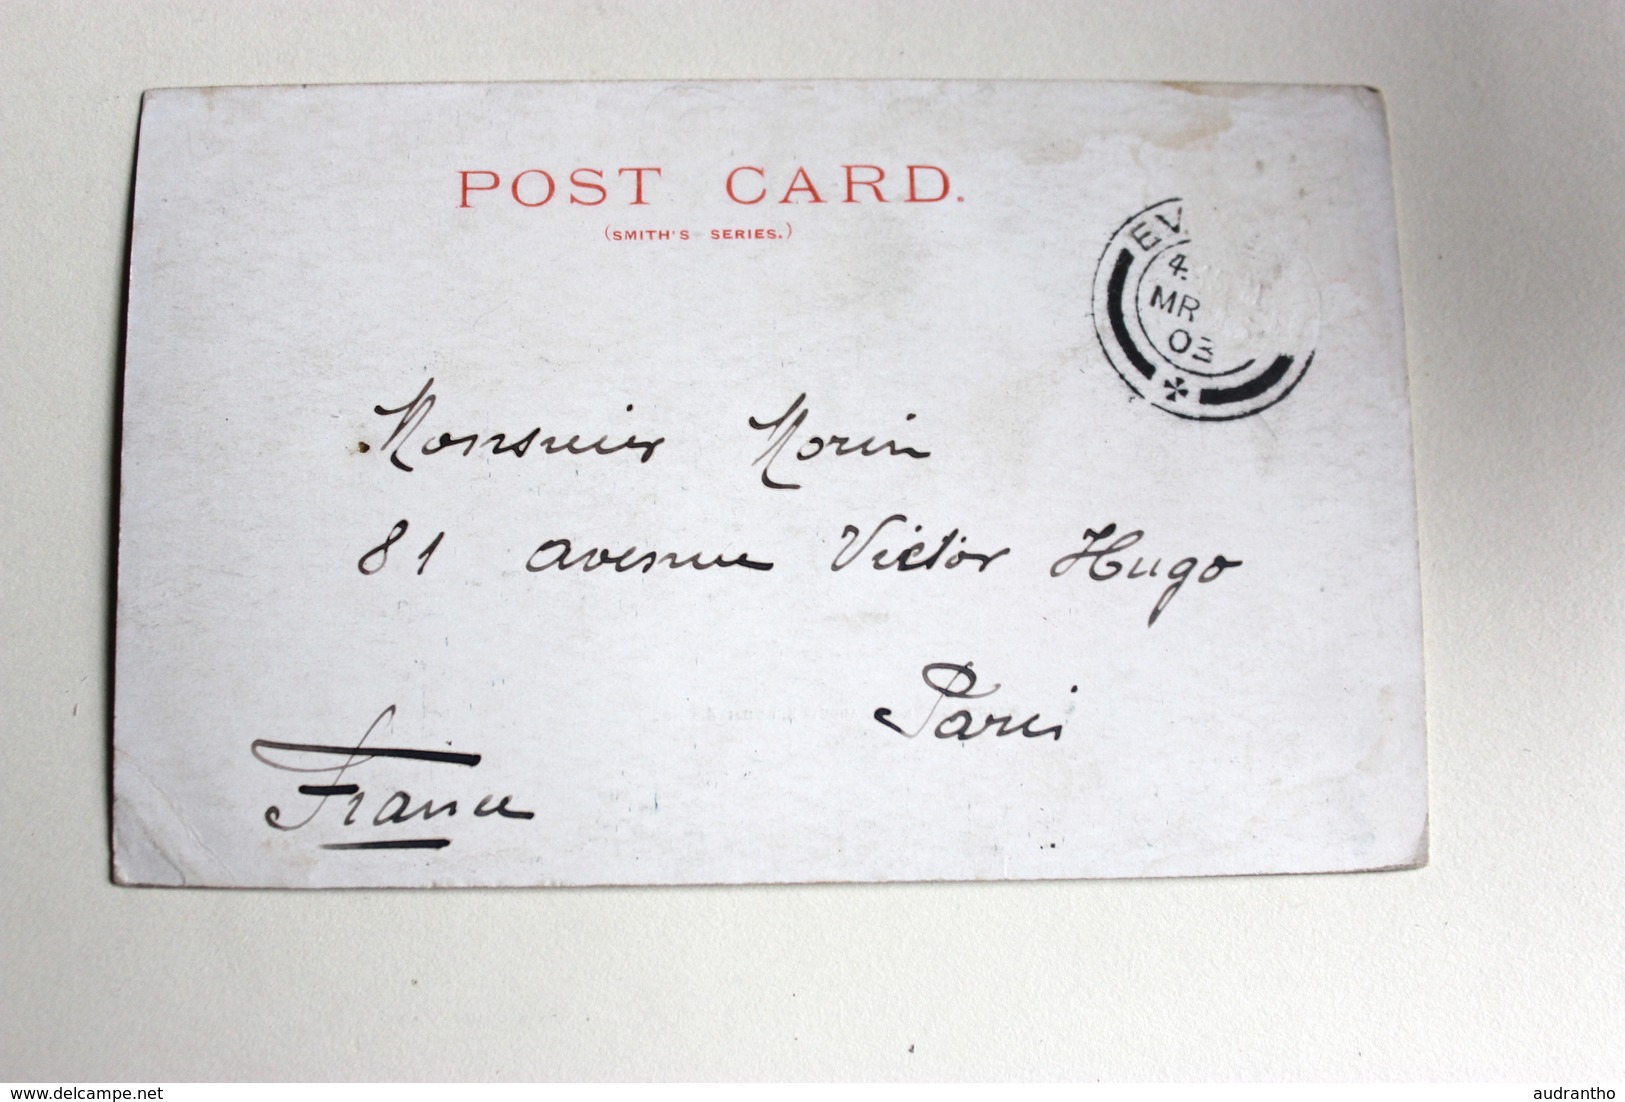 POST CARD.
(SMITH'S SERIES.)
EV
4.
MR
03
Monsieur Morin
81 avenue Victor Hugo
Paris
France
delcampe.net
audrantho